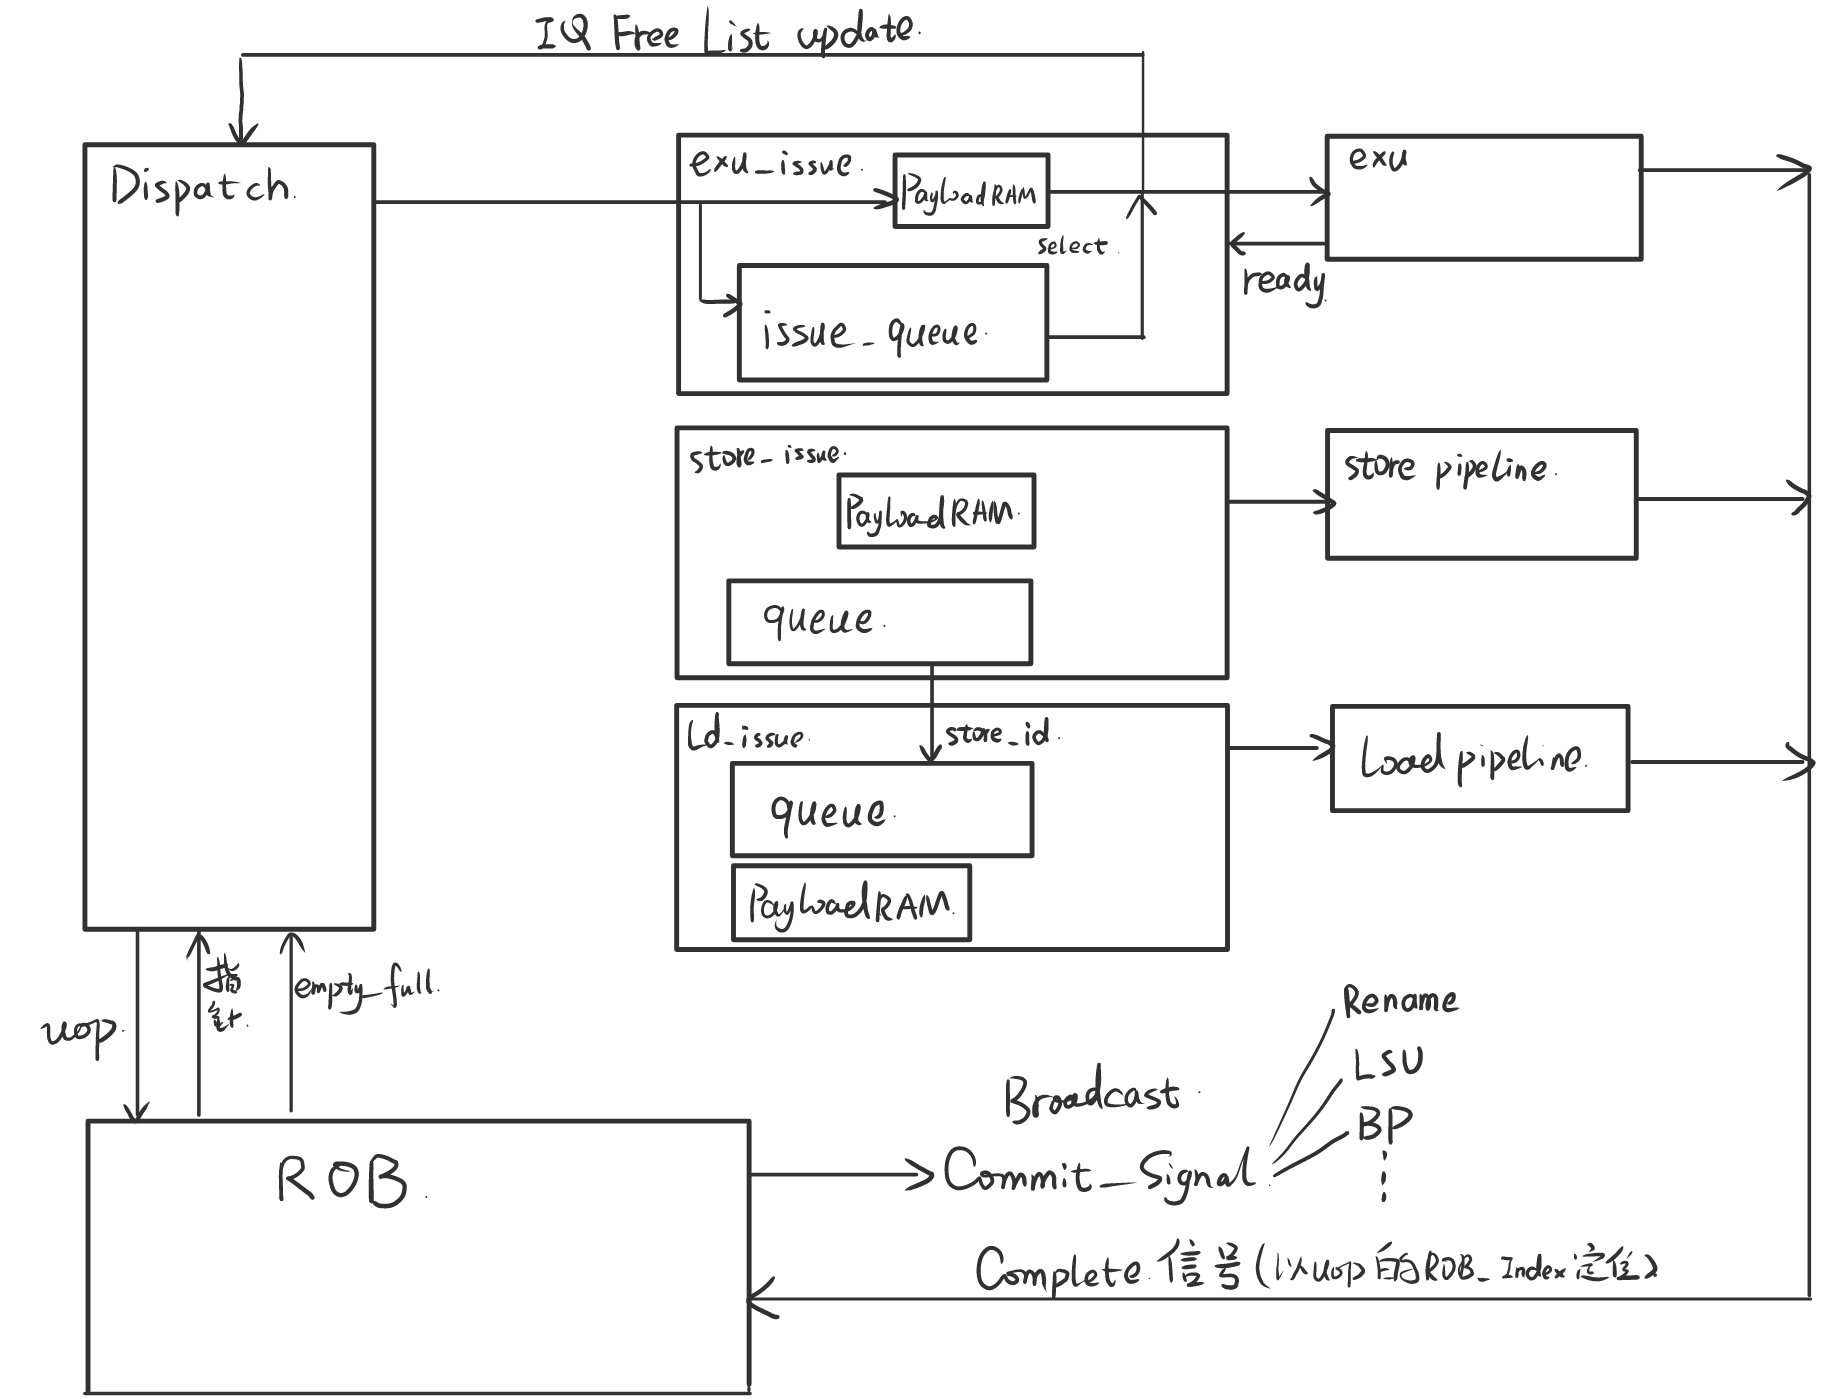 IQ Free List update.
Dispatch.
exu_issue.
PayloadRAM
select.
issue_queue.
exu
ready.
store_issue.
PayloadRAM.
queue.
store pipeline.
Ld_issue.
store_id.
queue.
PayloadRAM.
Load pipeline.
uop.
指
针.
empty_full.
ROB.
Broadcast.
Commit_Signal.
Rename
LSU
BP
Complete.信号(以uop的ROB_Index定位)